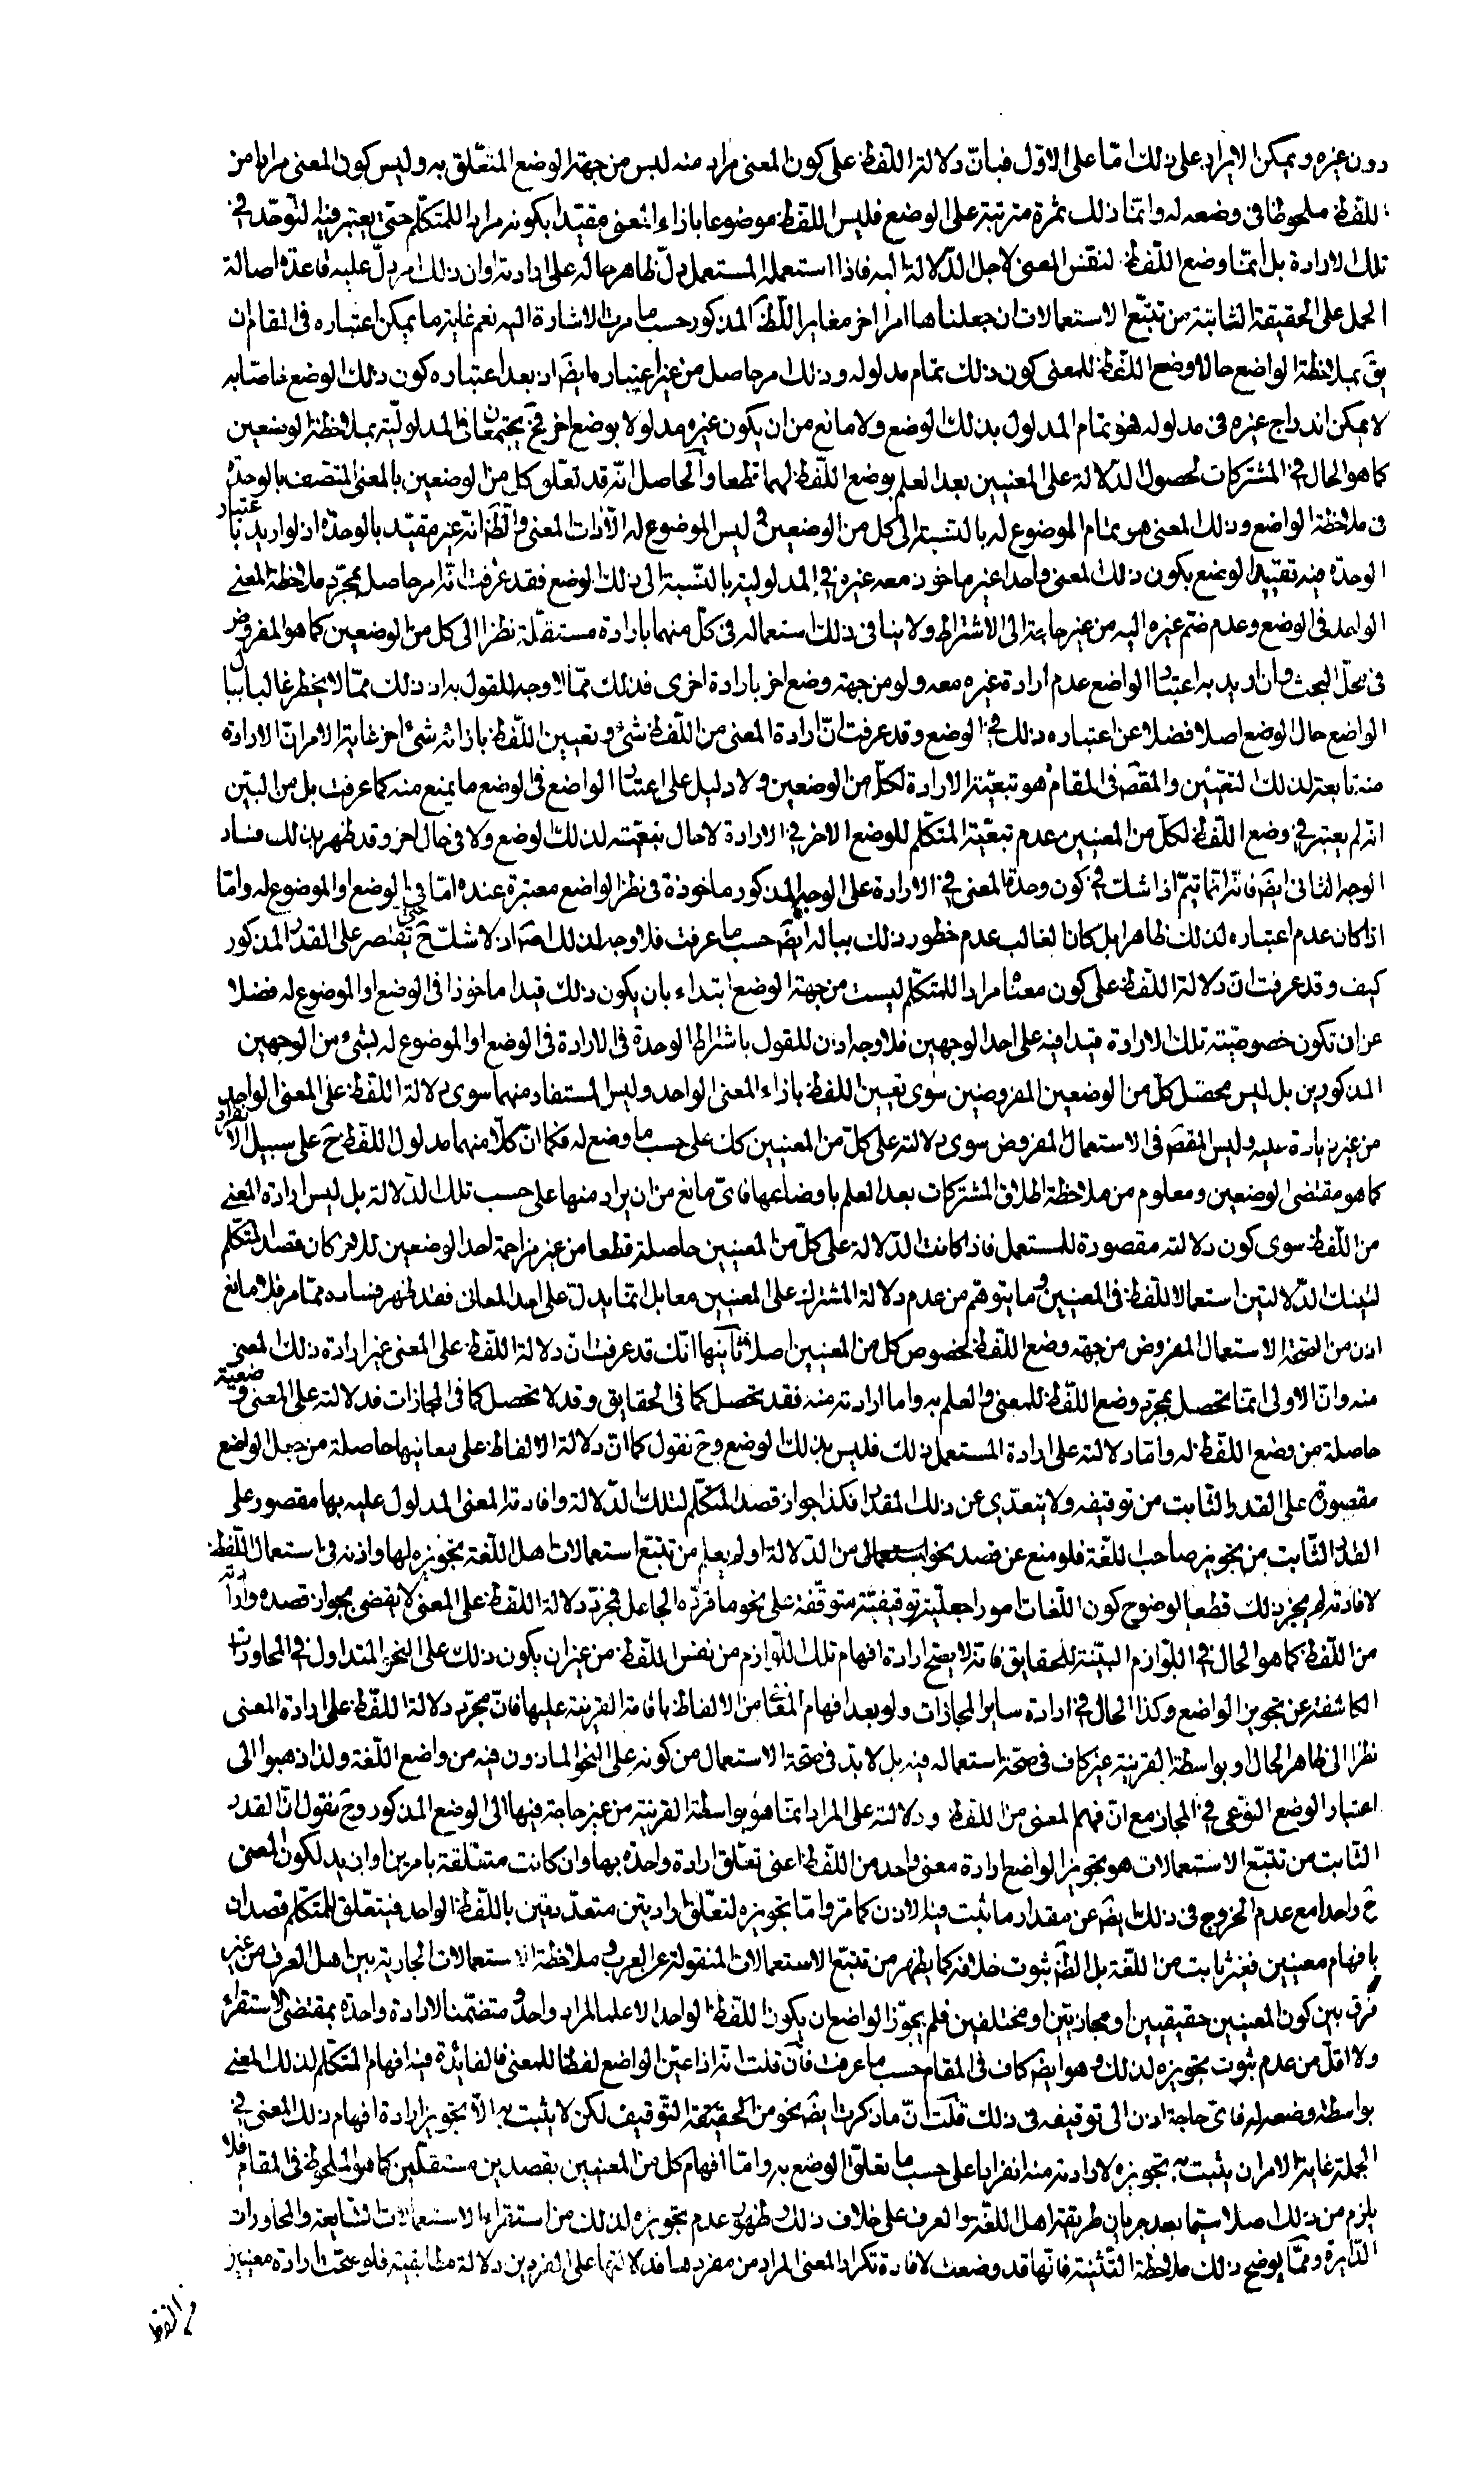 دون غيره ويمكن الايراد على ذلك امّا على الاوّل فبانّ دلالة اللّفظ على كون المعنى مراد منه ليس من جهة الوضع المتعلّق به وليس كون المعنى مرادا من
اللفظ ملحوظا فى وضعه له وانّما ذلك ثمرة مترتبة على الوضع فليس اللفظ موضوعا بازاء المعنى مقيّدا بكونه مراد للمتكلّم حتى يعتبر فيه التوحّد فى
تلك الارادة بل انّما وضع اللّفظ لنفس المعنى لاجل الدّلالة اليه فاذا استعمله المستعمل دلّ ظاهر حاله على ارادته او ان ذلك امر دلّ عليه قاعدة اصالة
الحمل على الحقيقة الثابتة من تتبّع الاستعمالات ان جعلناها امرا اخر مغايرا للظّ المذكور حسب ما مرت الاشارة اليه نعم غاية ما يمكن اعتباره فى المقام ان
يقَ بملاحظة الواضع حال وضع اللّفظ للمعنى كون ذلك تمام مدلوله وذلك امر حاصل من غير اعتباره ايضَ اذ بعد اعتباره كون ذلك الوضع خاصّا به
لا يمكن اندراج غيره فى مدلوله فهو تمام المدلول بذلك الوضع ولا مانع من ان يكون غيره مدلولا بوضع اخر فحَ يجتمعان فى المدلوليّة بملاحظة الوضعين
كما هو الحال فى المشتركات لحصول الدّلالة على المعنيين بعد العلم بوضع اللّفظ لهما قطعا والحاصل انّه قد تعلّق كل من الوضعين بالمعنى المتّصف بالوحدة
فى ملاحظة الواضع وذلك المعنى هو تمام الموضوع له بالنّسبة الى كل من الوضعين فليس الموضوع له الّا ذات المعنى والظَ انّه غير مقيّد بالوحدة اذ لو اريد باعتبار
الوحدة فيه تقييد الوضع بكون ذلك المعنى واحدا غير ماخوذ معه غيره فى المدلولية بالنّسبة الى ذلك الوضع فقد عرفت انّه امر حاصل بمجرّد ملاحظة المعنى
الواحد فى الوضع وعدم ضمّ غيره اليه من غير حاجة الى الاشتراط ولا ينافى ذلك استعماله فى كلّ منهما بارادة مستقلّة نظرا الى كل من الوضعين كما هو المفروض
فى محلّ البحث وان اريد به اعتبار الواضع عدم ارادة غيره معه ولو من جهة وضع اخر بارادة اخرى فذلك ممّا لا وجه للقول به اذ ذلك ممّا لا يخطر غالبا ببال
الواضع حال الوضع اصلا فضلا عن اعتباره ذلك فى الوضع وقد عرفت انّ ارادة المعنى من اللّفظ شئ وتعيين اللّفظ بازائه شئ اخر غاية الامر انّ الارادة
منه تابعة لذلك التعيّين والمقصَ فى المقام هو تبعيّة الارادة لكلّ من الوضعين ولا دليل على اعتبار الواضع فى الوضع ما يمنع منه كما عرفت بل من البيّن
انّه لم يعتبر فى وضع اللّفظ لكلّ من المعنيين عدم تبعيّة المتكلّم للوضع الاخر فى الارادة لا حال تبعيّته لذلك الوضع ولا فى حال اخر وقد ظهر بذلك فساد
الوجه الثانى ايضَ فانّه انّما يتمّ اذا شكّ فى كون وحدة المعنى فى الارادة على الوجه المذكور ماخوذة فى نظر الواضع معتبرة عنده امّا فى الوضع او الموضوع له وامّا
اذا كان عدم اعتباره لذلك ظاهرا بل كان الغالب عدم خطور ذلك بباله ايضَ حسب ما عرفت فلا وجه لذلك اصَ اذ لا شكّ حَ حتى يقتصر على القدر المذكور
كيف وقد عرفت انّ دلالة اللّفظ على كون معناه مرادا للمتكلّم ليست من جهة الوضع ابتداء بان يكون ذلك قيدا ماخوذا فى الوضع او الموضوع له فضلا
عن ان تكون خصوصيّة تلك الارادة قيدا فيه على احد الوجهين فلا وجه اذن للقول باشتراط الوحدة فى الارادة فى الوضع او الموضوع له بشئ من الوجهين
المذكورين بل ليس محصّل كلّ من الوضعين المفروضين سوى تعيين اللفظ بازاء المعنى الواحد وليس المستفاد منهما سوى دلالة اللّفظ على المعنى الواحد
من غير زيادة عليه وليس المقصَ فى الاستعمال المفروض سوى دلالته على كلّ من المعنيين كك على حسب ما وضع له فكما انّ كلّا منهما مدلول اللفظ حَ على سبيل الانفراد
كما هو مقتضى الوضعين ومعلوم من ملاحظة اطلاق المشتركات بعد العلم باوضاعها فاىّ مانع من ان يراد منها على حسب تلك الدّلالة بل ليس ارادة المعنى
من اللّفظ سوى كون دلالته مقصودة للمستعمل فاذا كانت الدّلالة على كلّ من المعنيين حاصلة قطعا من غير مزاحمة احد الوضعين للاخر كان قصد المتكلّم
لتينك الدّلالتين استعمالا للفظ فى المعنيين وما يتوهّم من عدم دلالة المشترك على المعنيين معا بل انّما يدلّ على احد المعانى فقد ظهر فساده ممّا مر فلا مانع
اذن من صحّة الاستعمال المفروض من جهة وضع اللّفظ لخصوص كل من المعنيين اصلا ثانيها انّك قد عرفت انّ دلالة اللّفظ على المعنى غير ارادة ذلك المعنى
منه وانّ الاولى انّما يحصل بمجرّد وضع اللّفظ للمعنى والعلم به واما ارادته منه فقد يحصل كما فى الحقايق وقد لا يحصل كما فى المجازات فدلالته على المعنى وضعيّة
حاصلة من وضع اللفظ له وامّا دلالته على ارادة المستعمل ذلك فليس بذلك الوضع وحَ نقول كما انّ دلالة الالفاظ على معانيها حاصلة من جعل الواضع
مقصورة على القدر الثّابت من توقيفه ولا يتعدّى عن ذلك المقدار فكذا جواز قصد المتكلّم لتلك الدّلالة وافادته المعنى المدلول عليه بها مقصور على
القدر الثّابت من تجويز صاحب اللّغة فلو منع عن قصد نحو من الدّلالة او لم يعلم من تتبّع استعمالات اهل اللّغة تجويزه لها واذنه فى استعمال اللّفظ
لافادته لم يجز ذلك قطعا لوضوح كون اللّغات امورا جعليّة توقيفيّة متوقّفة على نحو ما قرّره الجاعل فمجرّد دلالة اللّفظ على المعنى لا يقضى بجواز قصده وارادته
من اللّفظ كما هو الحال فى اللّوازم البيّنة للحقايق فانّه لا يصح ارادة افهام تلك اللّوازم من نفس اللّفظ من غير ان يكون ذلك على النحو المتداول فى المحاورات
الكاشفة عن تجويز الواضع وكذا الحال فى ارادة ساير المجازات ولو بعد افهام المعنى من الالفاظ باقامة القرينة عليها فانّ مجرّد دلالة اللّفظ على ارادة المعنى
نظرا الى ظاهر الحال او بواسطة القرينة غير كاف فى صحّة استعماله فيه بل لا بدّ فى صحّة الاستعمال من كونه على النحو الماذون فيه من واضع اللّغة ولذا ذهبوا الى
اعتبار الوضع النّوعى فى المجاز مع انّ فهم المعنى من اللفظ ودلالته على المراد انّما هو بواسطة القرينة من غير حاجة فيها الى الوضع المذكور وحَ نقول انّ القدر
الثابت من تتبّع الاستعمالات هو تجويز الواضع ارادة معنى واحد من اللّفظ اعنى تعلّق ارادة واحدة بها وان كانت متعلّقة بامرين او ازيد لكون المعنى
حَ واحدا مع عدم الخروج فى ذلك ايضَ عن مقدار ما ثبت فيه الاذن كما مرّ وامّا تجويزه لتعلّق ارادتين متعدّدتين باللّفظ الواحد فيتعلّق للمتكلّم قصدان
بافهام معنيين فغير ثابت من اللغة بل الظَ ثبوت خلافه كما يظهر من تتبّع الاستعمالات المنقولة عن العرب وملاحظة الاستعمالات الجارية بين اهل العرف من غير
فرق بين كون المعنيين حقيقيين او مجازيّين او مختلفين فلم يجوّز الواضع ان يكون اللّفظ الواحد الّا علما لمراد واحد ومتضمّنا لارادة واحدة بمقتضى الاستقراء
ولا اقلّ من عدم ثبوت تجويزه لذلك وهو ايضَ كاف فى المقام حسب ما عرفت فان قلت انّه اذا عيّن الواضع لفظا للمعنى فالفائدة فيه افهام المتكلّم لذلك المعنى
بواسطة وضعه له فاىّ حاجة اذن الى توقيفه فى ذلك قلت انّ ما ذكرت ايضَ نحو من الحقيقة التّوقيف لكن لا يثبت به الّا تجويز ارادة افهام ذلك المعنى فى
الجملة غاية الامر ان يثبت به تجويزه لارادته منه انفرادا على حسب ما تعلّق الوضع به وامّا افهام كل من المعنيين بقصدين مستقلّين كما هو الملحوظ فى المقام فلا
يلزم من ذلك اصلا سيّما بعد جريان طريقة اهل اللّغة والعرف على خلاف ذلك وظهور عدم تجويزه لذلك من استقراء الاستعمالات الشايعة والمحاورات
الدّايرة وممّا يوضح ذلك ملاحظة التّثنية فانّها قد وضعت لافادة تكرار المعنى المراد من مفردها فدلالتها على الفردين دلالة مطابقيّة فلو صحّت ارادة معنيين
من المفرد